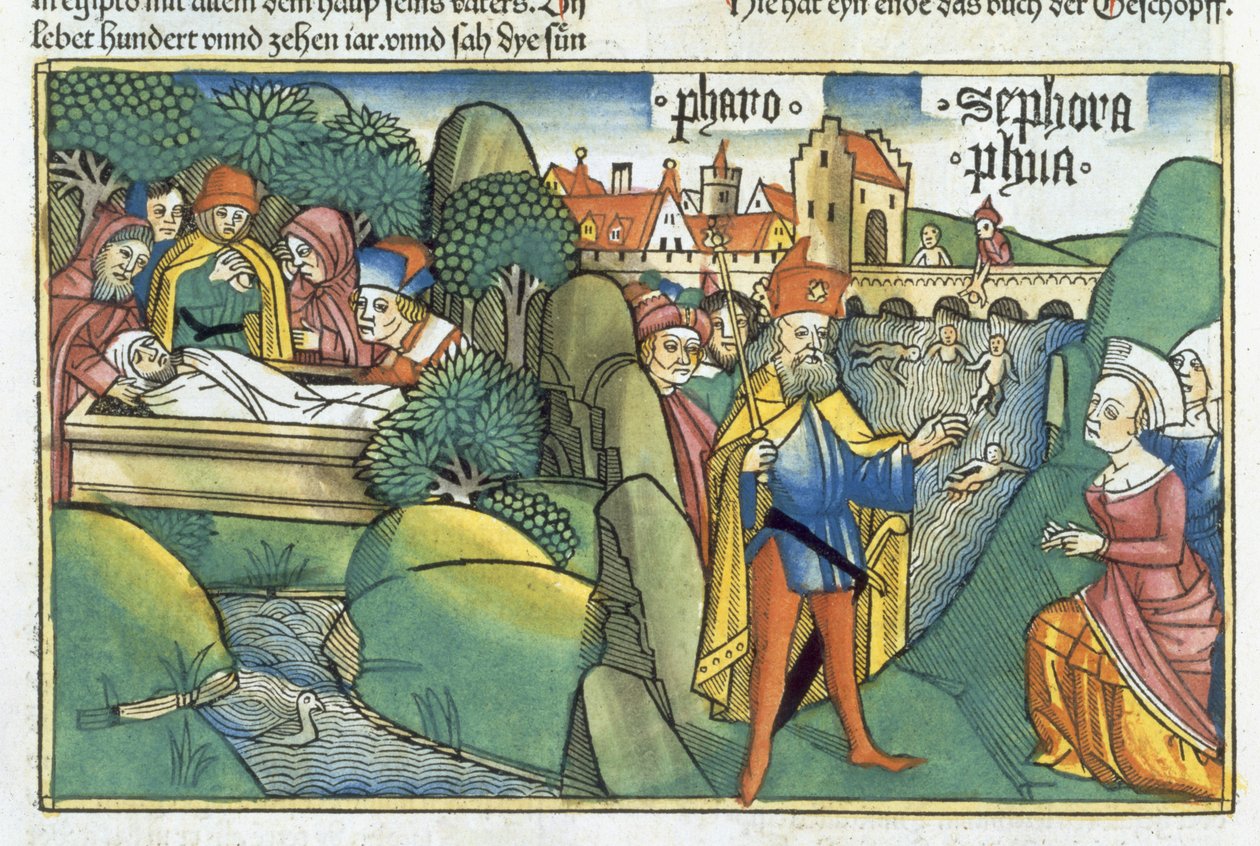 in egipto mit allem dem hauß seins vaters.
lebet hundert vnnd zehen iar. vnnd sah dye sün
Hie hat eyn ende das buch der Geschöpff.
·pharo·
·Sephora
·phuia·